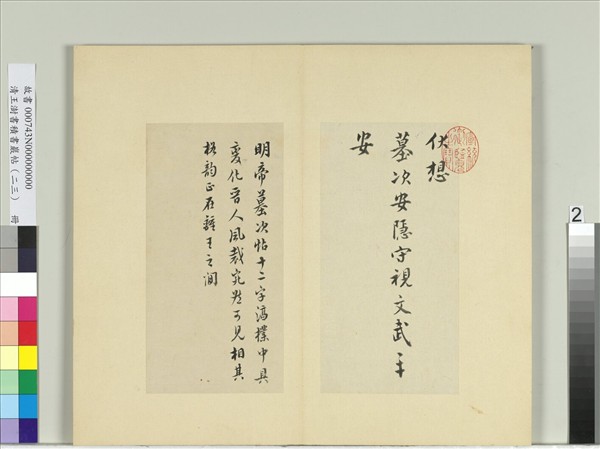 伏想
墓次安隱守視文武平
安
明帝墓次帖十二字淳樸中具
變化晉人風裁宛然可見相其
格韻正在鍾王之間
故書 000743N000000000
清王澍書積書巖帖（二三） 冊
2